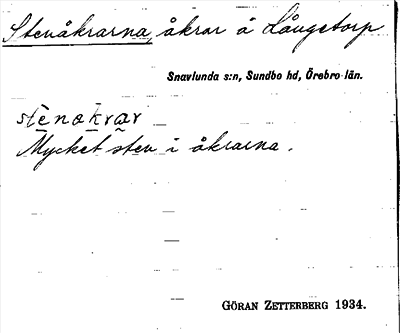 Stenåkrarna, åkrar å Långetorp
Snavlunda s:n, Sundbo hd, Örebro län.
stenakrar
Mycket sten i åkrarna.
GÖRAN ZETTERBERG 1934.